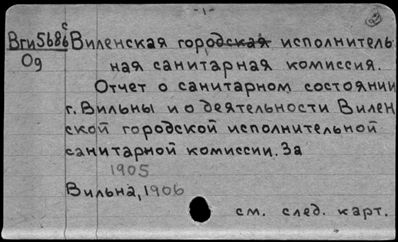 -1-
Вги5686с Виленская городская исполнитель
Од ная санитарная комиссия.
Отчет о санитарном состоянии
г. Вильны и о деятельности Вилен
ской городской исполнительной
санитарной комиссии. За
1905
Вильна, 1906
см. след. карт.